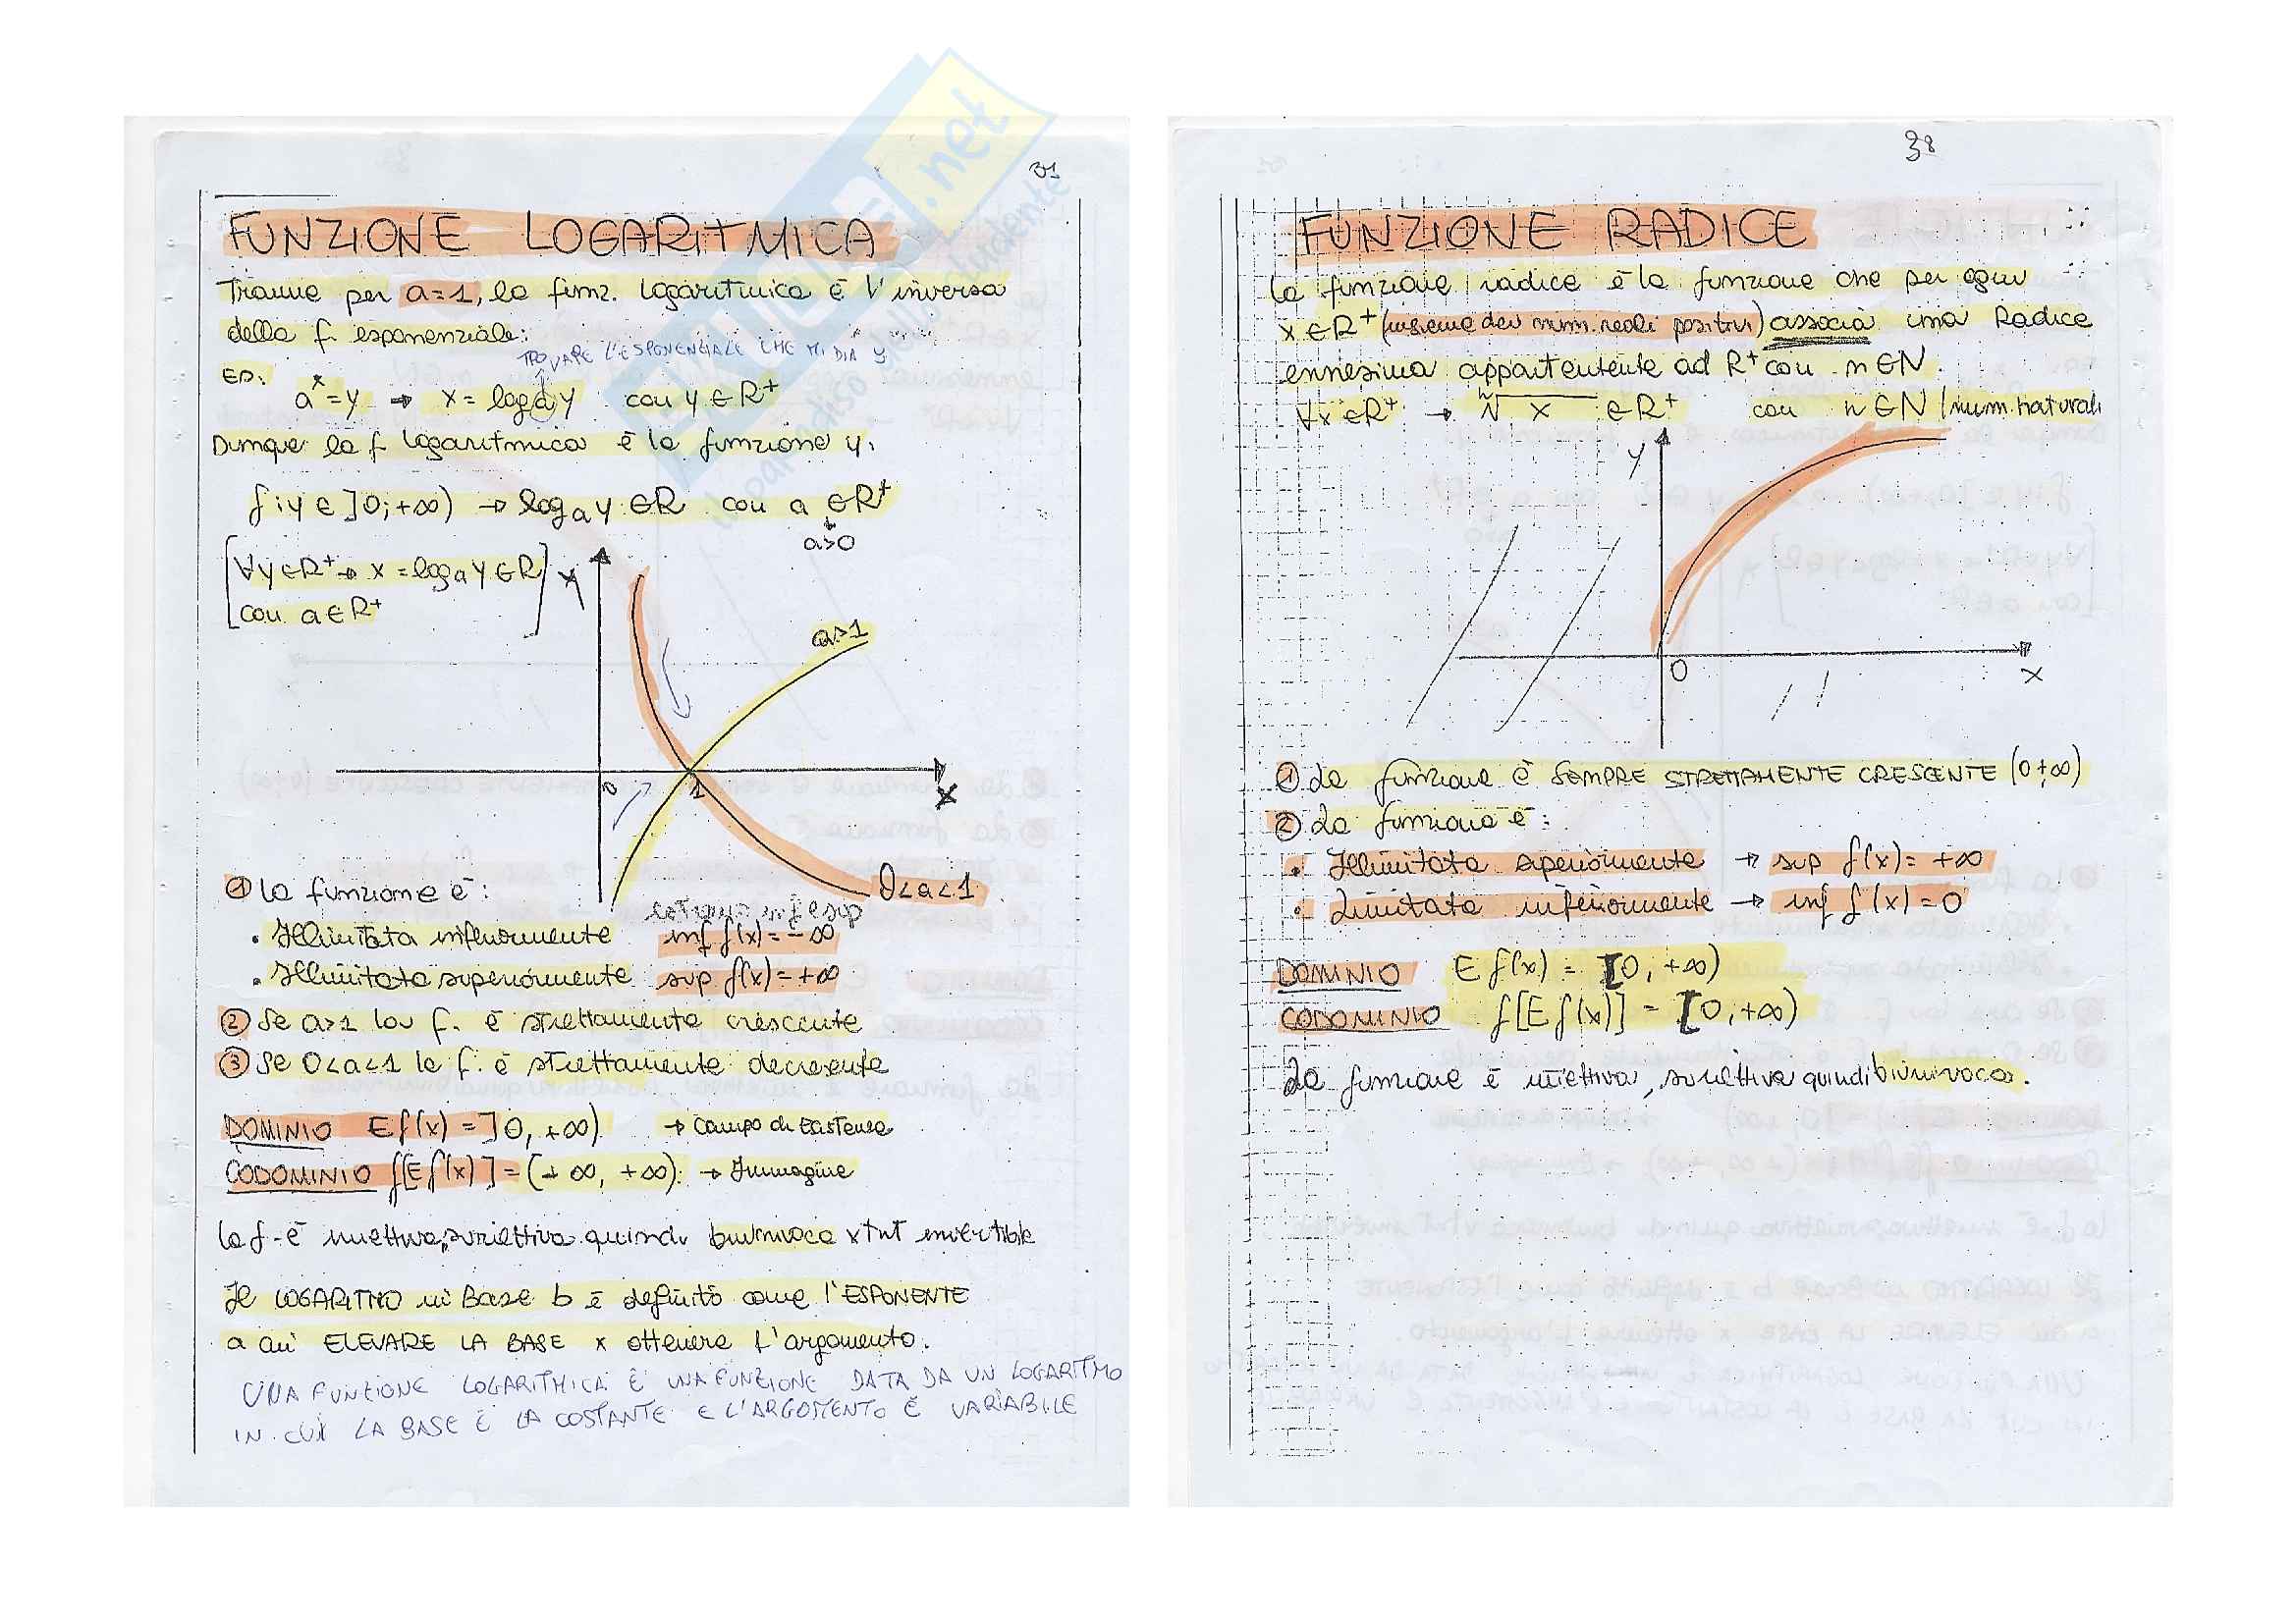 31
FUNZIONE LOGARITMICA
Tranne per a=1, la funz. logaritmica è l'inversa
della f. esponenziale:
TROVARE L'ESPONENZIALE CHE MI DIA y
ES. aˣ=y → x=logₐy con y∈R⁺
Dunque la f logaritmica è la funzione y.
f:y∈]0;+∞) → logₐy∈R con a∈R⁺
a>0
[∀y∈R⁺→ x=logₐy∈R]
con a∈R⁺
a>1
0 1
x
0<a<1
① la funzione è:
estremi inf e sup
• Illimitata inferiormente inf f(x)=-∞
• Illimitata superiormente sup f(x)=+∞
② Se a>1 la f. è strettamente crescente
③ Se 0<a<1 la f. è strettamente decrescente
DOMINIO E f(x)=]0,+∞) → Campo di Esistenza
CODOMINIO f[E f(x)]=(+∞,+∞). → Immagine
la f è iniettiva, suriettiva quindi biunivoca xtnt invertibile
Il LOGARITMO in Base b è definito come l'ESPONENTE
a cui ELEVARE LA BASE x ottenere l'argomento.
UNA FUNZIONE LOGARITMICA È UNA FUNZIONE DATA DA UN LOGARITMO
IN CUI LA BASE È LA COSTANTE E L'ARGOMENTO È VARIABILE
38
FUNZIONE RADICE
La funzione radice è la funzione che per ogni
x∈R⁺ (insieme dei num. reali positivi) associa una Radice
ennesima appartenente ad R⁺ con n∈N.
∀x∈R⁺ → ⁿ√x ∈R⁺ con n∈N/num. naturali
y
0
x
① La funzione è SEMPRE STRETTAMENTE CRESCENTE (0+∞)
② La funzione è:
• Illimitata superiormente → sup f(x)=+∞
• Limitata inferiormente → inf f(x)=0
DOMINIO E f(x) = [0,+∞)
CODOMINIO f[E f(x)] = [0,+∞)
La funzione è iniettiva, suriettiva quindi biunivoca.